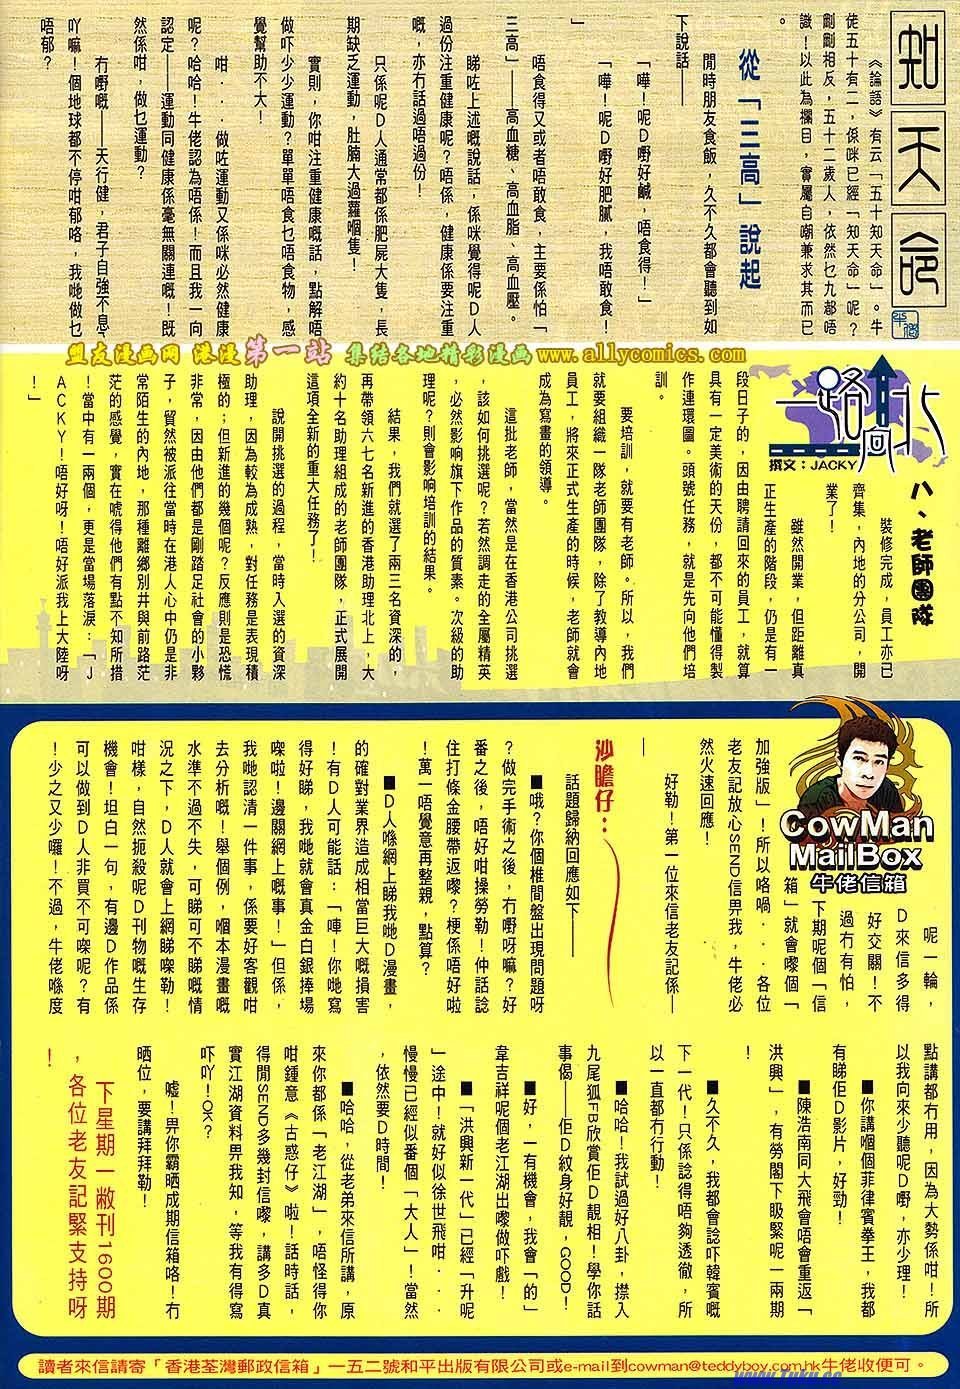 知天命
牛佬
《論語》有云「五十知天命」。牛
徒五十有二，係咪已經「知天命」呢？
剛剛相反，五十二歲人，依然乜九都唔
識！以此為欄目，實屬自嘲兼求其而已
。
從「三高」說起
閒時朋友食飯，久不久都會聽到如
下說話——
「嘩！呢D嘢好鹹，唔食得！」
「嘩！呢D嘢好肥膩，我唔敢食！」
唔食得又或者唔敢食，主要係怕「
三高」——高血糖、高血脂、高血壓。
睇咗上述嘅說話，係咪覺得呢D人
過份注重健康呢？唔係，健康係要注重
嘅，亦冇話過唔過份！
只係呢D人通常都係肥屍大隻，長
期缺乏運動，肚腩大過籮嗰隻！
實則，你咁注重健康嘅話，點解唔
做吓少少運動？單單唔食乜唔食物，感
覺幫助不大！
咁．．．做咗運動又係咪必然健康
呢？哈哈！牛佬認為唔係！而且我一向
認定——運動同健康係毫無關連嘅！既
然係咁，做乜運動？
冇嘢嘅——天行健，君子自強不息
吖嘛！個地球都不停咁郁咯，我哋做乜
唔郁？
盟友漫画网 港漫第一站 集结各地精彩漫画 www.allycomics.com
一路向北
撰文：JACKY
八、老師團隊
裝修完成，員工亦已
齊集，內地的分公司，開
業了！
雖然開業，但距離真
正生產的階段，仍是有一
段日子的，因由聘請回來的員工，就算
具有一定美術的天份，都不可能懂得製
作連環圖。頭號任務，就是先向他們培
訓。
要培訓，就要有老師。所以，我們
就要組織一隊老師團隊，除了教導內地
員工，將來正式生產的時候，老師就會
成為寫畫的領導。
這批老師，當然是在香港公司挑選
，該如何挑選呢？若然調走的全屬精英
，必然影响旗下作品的質素。次級的助
理呢？則會影响培訓的結果。
結果，我們就選了兩三名資深的，
再帶領六七名新進的香港助理北上，大
約十名助理組成的老師團隊，正式展開
這項全新的重大任務了！
說開挑選的過程，當時入選的資深
助理，因為較為成熟，對任務是表現積
極的；但新進的幾個呢？反應則是恐慌
非常，因由他們都是剛踏足社會的小夥
子，貿然被派往當時在港人心中仍是非
常陌生的內地，那種離鄉別井與前路茫
茫的感覺，實在唬得他們有點不知所措
！當中有一兩個，更是當場落淚：「J
ACKY！唔好呀！唔好派我上大陸呀
！」
CowMan
MailBox
牛佬信箱
呢一輪，
D來信多得
好交關！不
過冇有怕，
下期呢個「信
箱」就會嚟個「
加強版」！所以咯喎．．各位
老友記放心SEND信畀我，牛佬必
然火速回應！
好勒！第一位來信老友記係——
沙膽仔：
話題歸納回應如下——
■哦？你個椎間盤出現問題呀
？做完手術之後，冇嘢呀嘛？好
番之後，唔好咁操勞勒！仲話諗
住打條金腰帶返嚟？梗係唔好啦
！萬一唔覺意再整親，點算？
■D人喺網上睇我哋D漫畫，
的確對業界造成相當巨大嘅損害
！有D人可能話：「唓！你哋寫
得好睇，我哋就會真金白銀捧場
㗎啦！邊關網上嘅事！」但係，
我哋認清一件事，係要好客觀咁
去分析嘅！舉個例，嗰本漫畫嘅
水準不過不失，可睇可不睇嘅情
況之下，D人就會上網睇㗎勒！
咁樣，自然扼殺呢D刊物嘅生存
機會！坦白一句，有邊D作品係
可以做到D人非買不可㗎呢？有
！少之又少囉！不過，牛佬喺度
點講都冇用，因為大勢係咁！所
以我向來少聽呢D嘢，亦少理！
■你講嗰個菲律賓拳王，我都
有睇佢D影片，好勁！
■陳浩南同大飛會唔會重返「
洪興」，有勞閣下眼緊呢一兩期
！
■久不久，我都會諗吓韓賓嘅
下一代！只係諗得唔夠透徹，所
以一直都冇行動！
■哈哈！我試過好八卦，㩒入
九尾狐FB欣賞佢D靚相！學你話
事偈——佢D紋身好靚，GOOD！
■好，一有機會，我會「的」
韋吉祥呢個老江湖出嚟做吓戲！
■「洪興新一代」已經「升呢
」途中！就好似徐世飛咁．．．
慢慢已經似番個「大人」！當然
，依然要D時間！
■哈哈，從老弟來信所講，原
來你都係「老江湖」，唔怪得你
咁鍾意《古惑仔》啦！話時話，
得閒SEND多幾封信嚟，講多D真
實江湖資料畀我知，等我有得寫
吓吖！OK？
噓！畀你霸晒成期信箱咯！冇
晒位，要講拜拜勒！
下星期一敝刊1600期
，各位老友記緊支持呀
！
讀者來信請寄「香港荃灣郵政信箱」一五二號和平出版有限公司或e-mail到cowman@teddyboy.com.hk牛佬收便可。
www.Tuku.cc